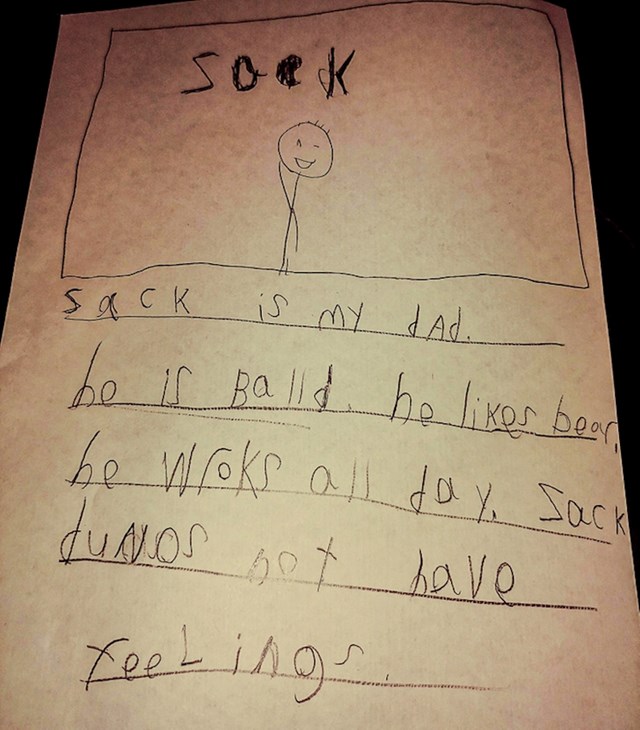 Sack
Sack is my dAd.
he is Balld. he likes bear.
he Wroks all day. Sack
duNos not have
feeLings.